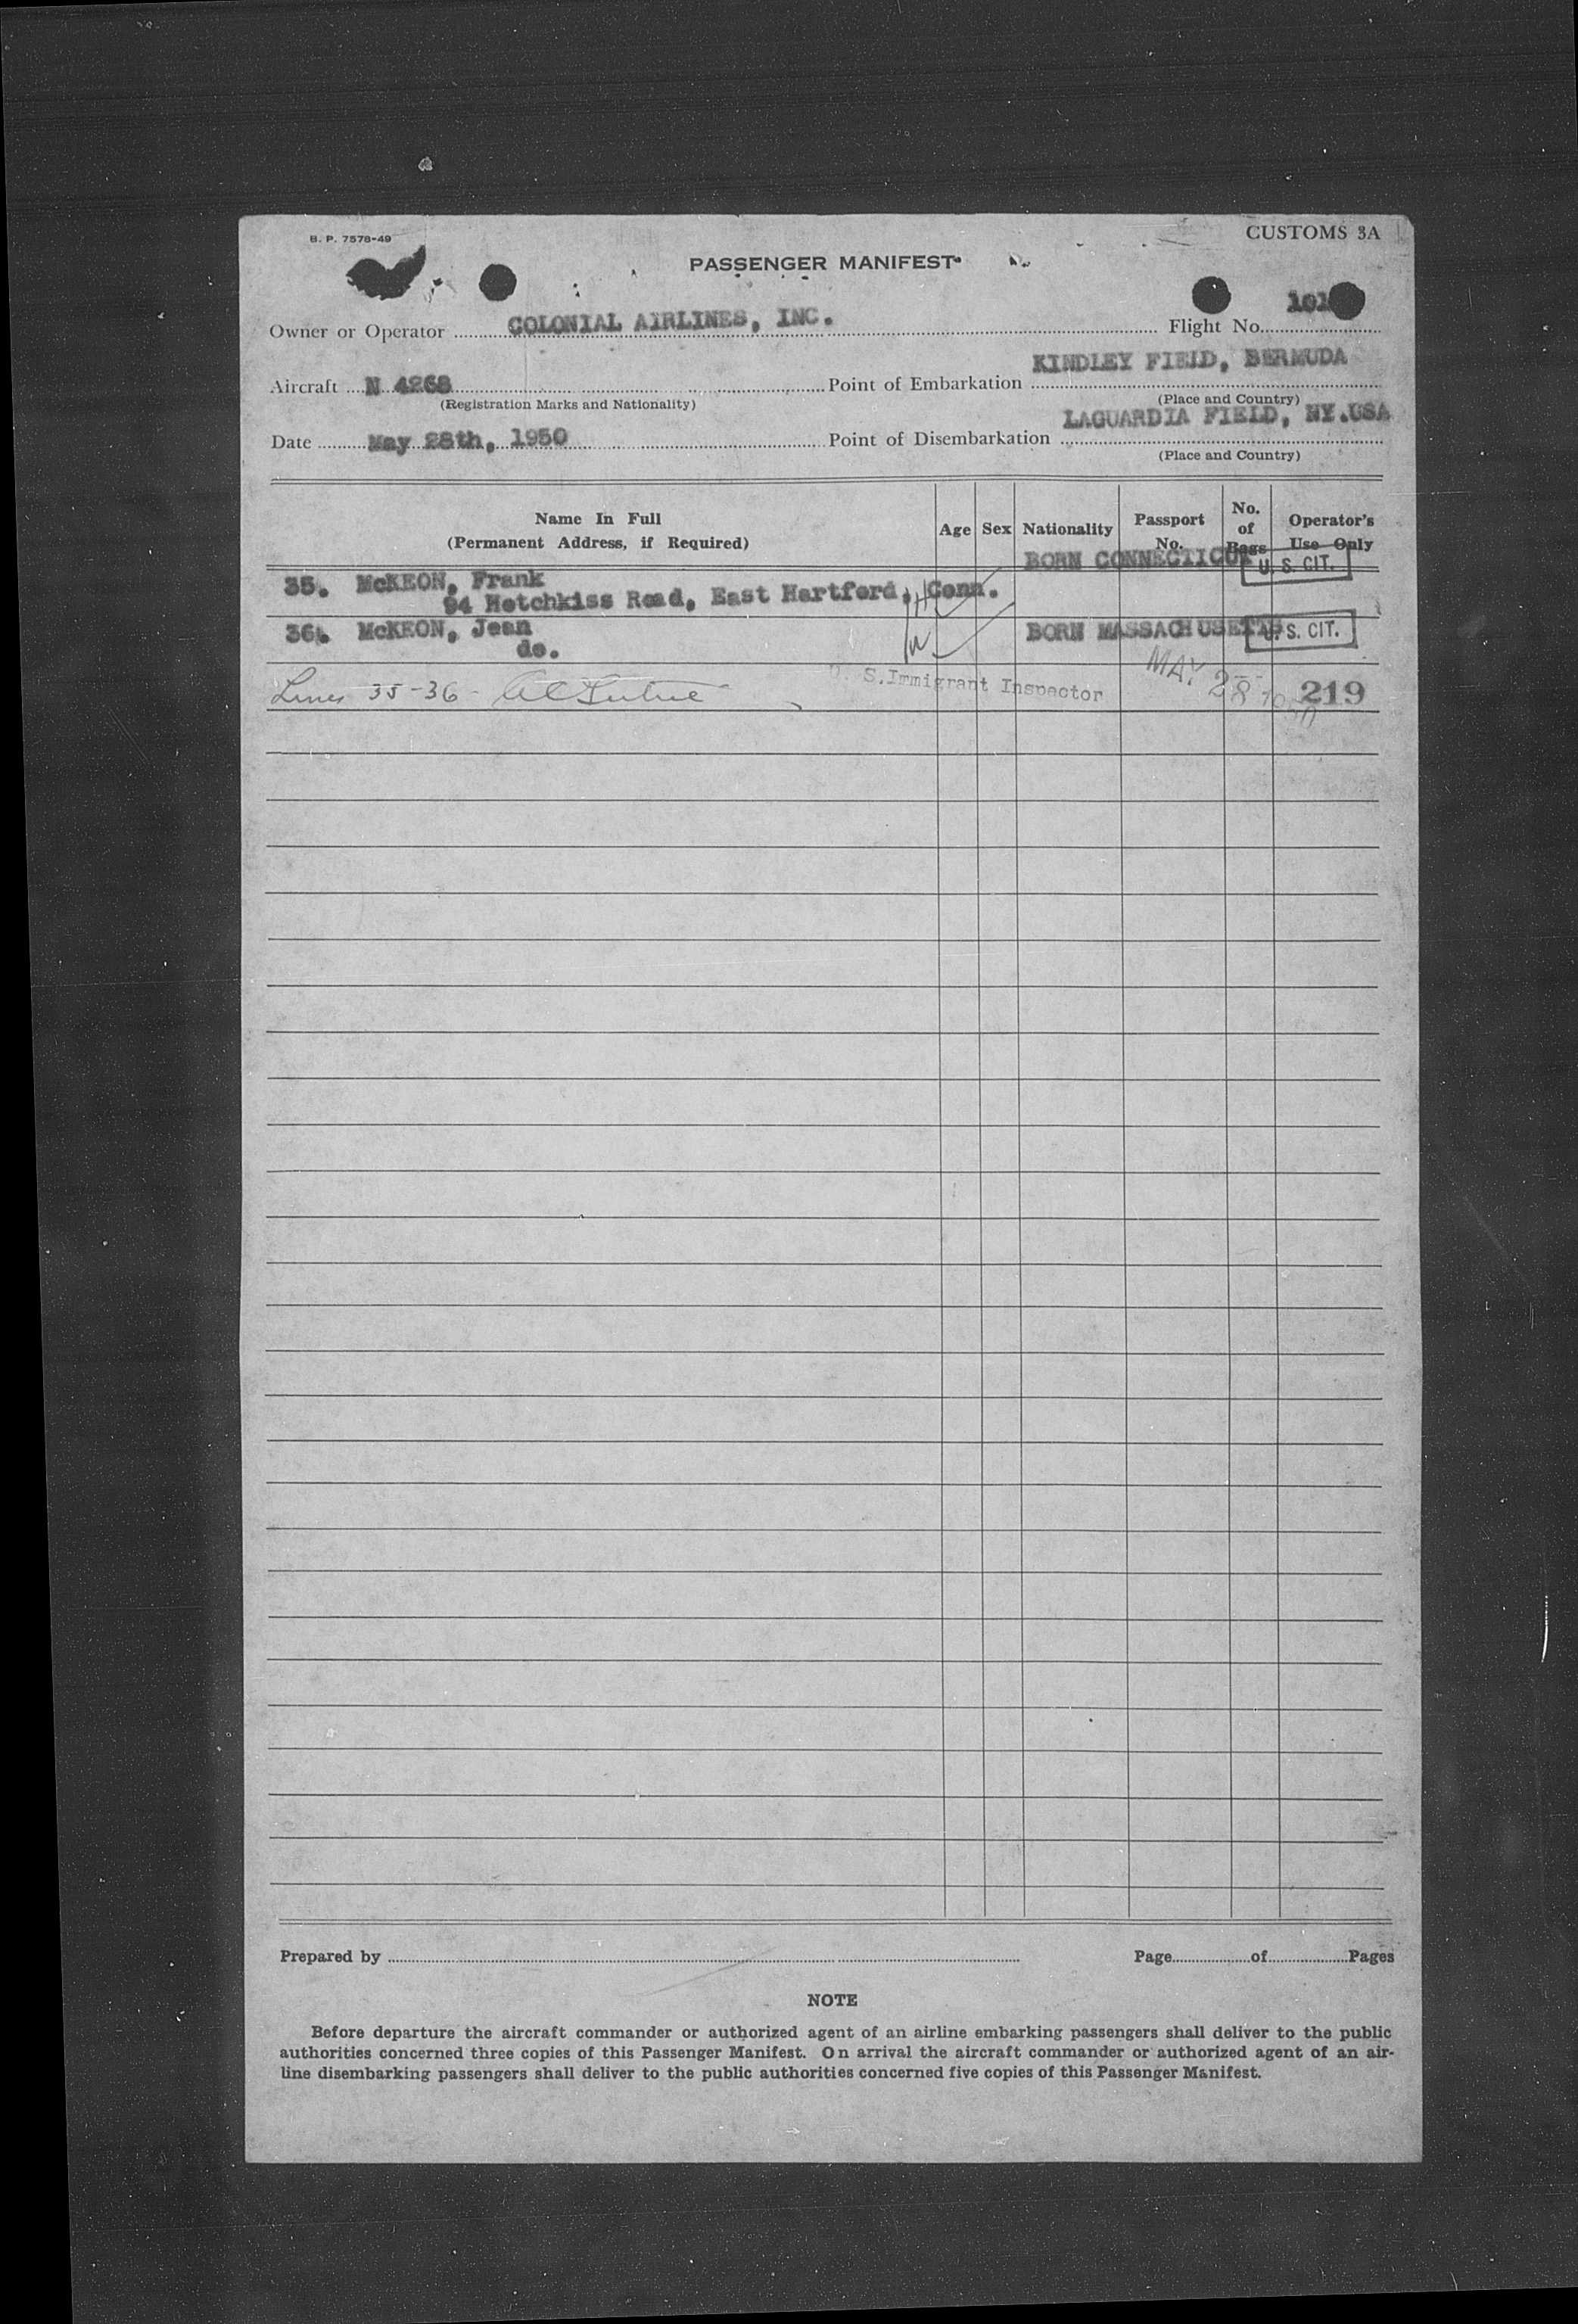 B. P. 7578-49
CUSTOMS 3A
PASSENGER MANIFEST
Owner or Operator COLONIAL AIRLINES, INC. Flight No. 101
Aircraft N 4268 Point of Embarkation KINDLEY FIELD, BERMUDA
(Registration Marks and Nationality) (Place and Country)
Date May 28th, 1950 Point of Disembarkation LAGUARDIA FIELD, NY.USA
(Place and Country)
Name In Full (Permanent Address, if Required) Age Sex Nationality Passport No. No. of Bags Operator's Use Only
BORN CONNECTICUT U. S. CIT.
35. McKEON, Frank
94 Hotchkiss Road, East Hartford, Conn.
H
36. McKEON, Jean BORN MASSACHUSETTS U. S. CIT.
do.
W
Lines 35-36 - U. S. Immigrant Inspector MAY 28 1950 219
Prepared by Page of Pages
NOTE
Before departure the aircraft commander or authorized agent of an airline embarking passengers shall deliver to the public
authorities concerned three copies of this Passenger Manifest. On arrival the aircraft commander or authorized agent of an air-
line disembarking passengers shall deliver to the public authorities concerned five copies of this Passenger Manifest.